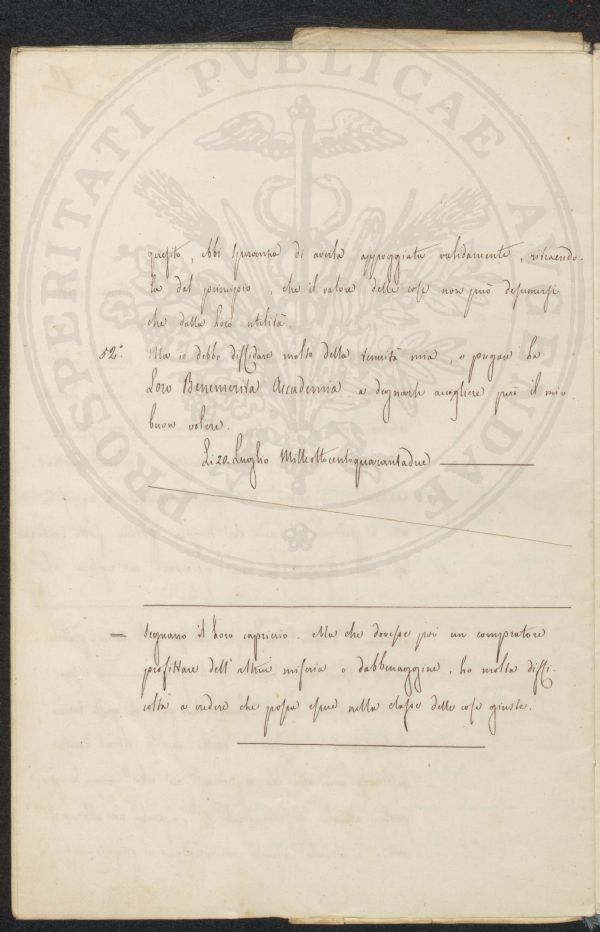 PROSPERITATI PVBLICAE AVGENDAE
quesito, ebbi speranza di averla appoggiata validamente, traendo-
la dal principio, che il valore delle cose non può desumersi
che dalla loro utilità.
52°. Ma io debbo diffidare molto della tenuità mia, e pregare la
Loro Benemerita Accademia a degnarsi accogliere però il mio
buon volere.
Li 20. Luglio Milleottocentoquarantadue
— Segnano il loro capriccio. Ma che dovesse poi un compratore
profittare dell'altrui miseria o dabbenaggine, ho molta diffi-
coltà a credere che possa essere nella classe delle cose giuste.